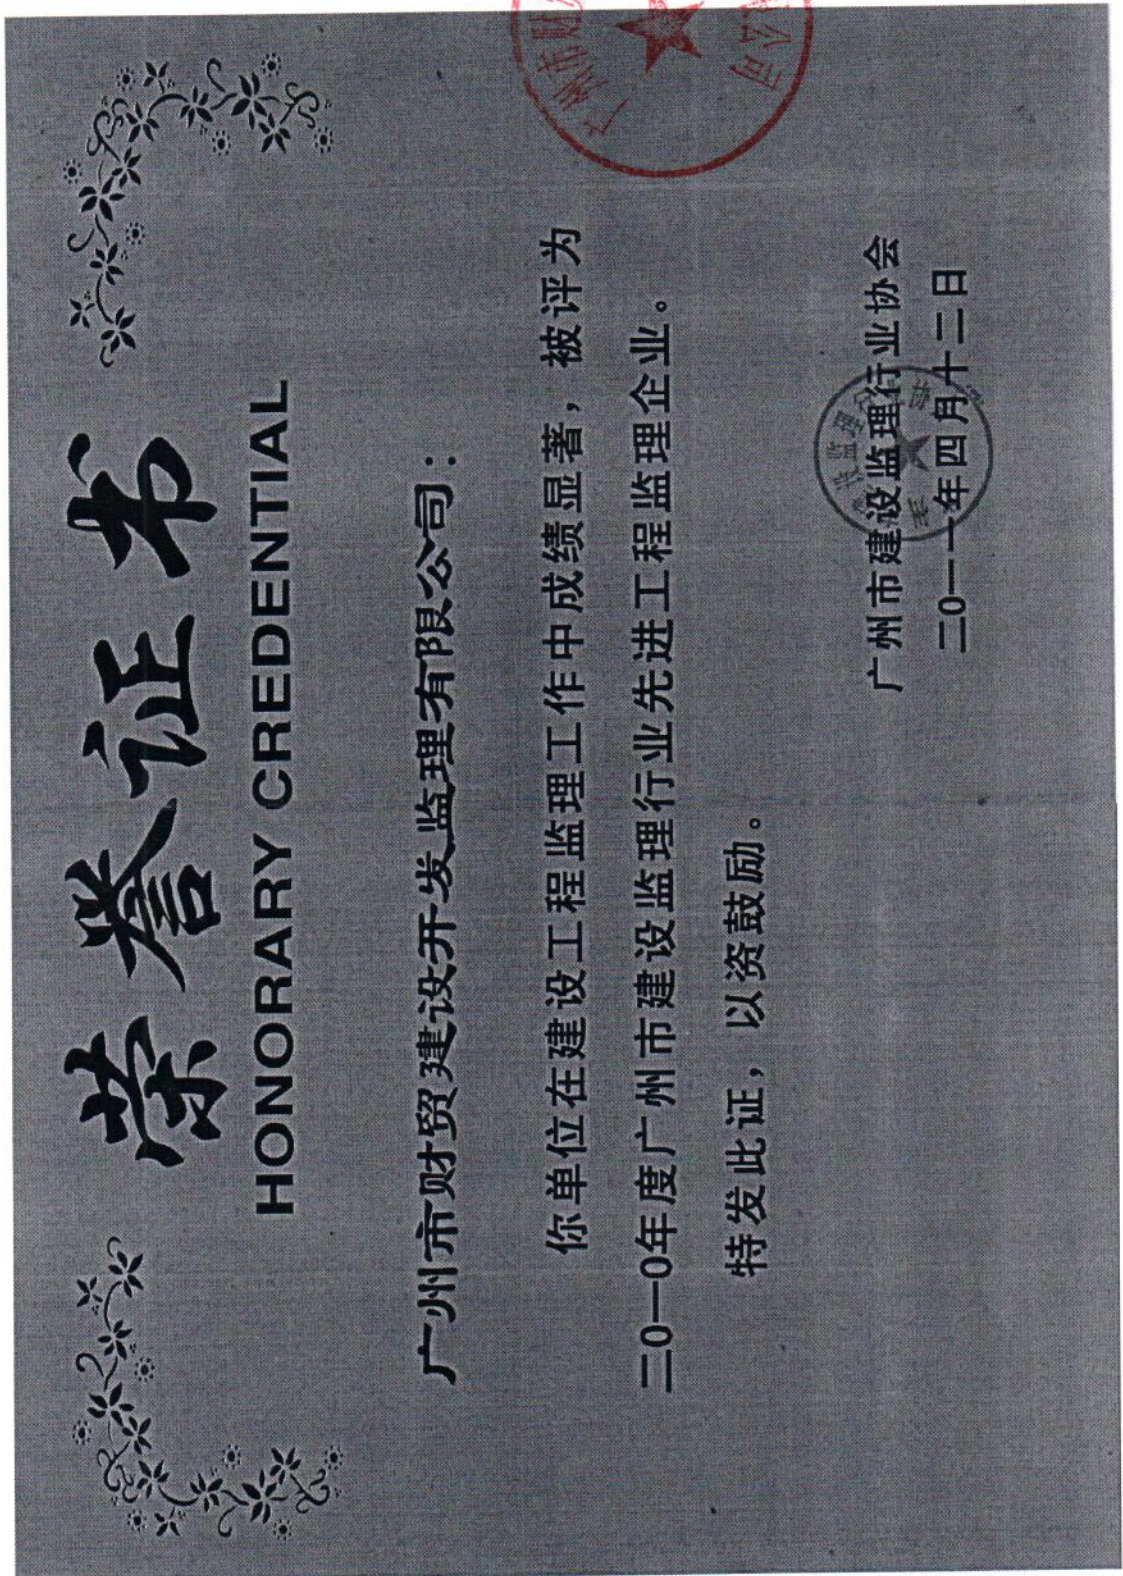 荣誉证书
HONORARY CREDENTIAL
广州市财贸建设开发监理有限公司：
你单位在建设工程监理工作中成绩显著，被评为
二0一0年度广州市建设监理行业先进工程监理企业。
特发此证，以资鼓励。
广州市建设监理行业协会
二0一一年四月十二日
广州市财
公司